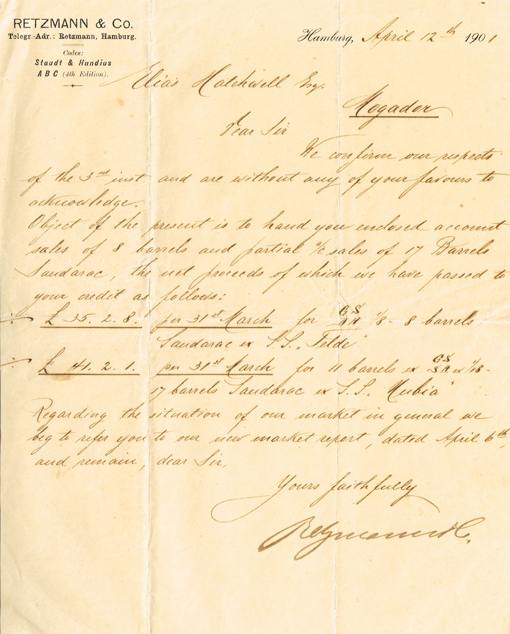 RETZMANN & Co.
Telegr.-Adr.: Retzmann, Hamburg.
Codes:
Staudt & Hundius
A B C (4th Edition).
Hamburg, April 12th 1901
Elias Hatchwell Esq.
Mogador
Dear Sir
We confirm our respects
of the 3rd inst and are without any of your favours to
acknowledge.
Object of the present is to hand you enclosed account
sales of 8 barrels and partial a/c sales of 17 Barrels
Sandarac, the net proceeds of which we have passed to
your credit as follows:
£ 35. 2. 8. per 31st March for 1/8 - 8 barrels
Sandarac ex S.S. "Telde"
£ 41. 2. 1. per 31st March for 11 barrels ex
17 barrels Sandarac ex S.S. "Nubia"
Regarding the situation of our market in general we
beg to refer you to our new market report, dated April 6th,
and remain, dear Sir,
Yours faithfully
Retzmann & Co.